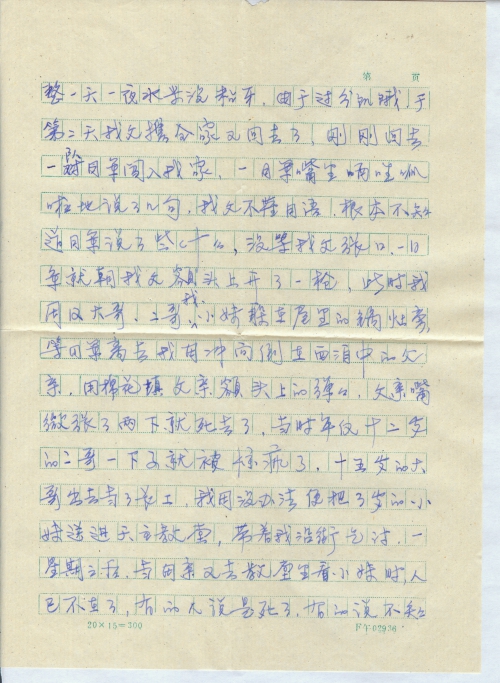 第 页
整一天一夜水米没粘牙，由于过分饥饿，于
第二天我父携全家又回去了，刚刚回去
一群日军闯入我家，一日军嘴里哇呱
啦地说了几句，我父不懂日语，根本不知
道日军说了些什么，没等我父张口，一日
军就朝我父额头上开了一枪，此时我
母及大哥、二哥、我、小妹躲在屋里的锅灶旁，
等日军离去我母冲向倒在血泊中的父
亲，用棉花填父亲额头上的弹口，父亲嘴
微张了两下就死去了，当时年仅十二岁
的二哥一下子就被惊疯了，十五岁的大
哥出去当了长工，我母没办法便把3岁的小
妹送进天主教堂，带着我沿街乞讨，一
星期之后，当母亲又去教堂里看小妹时，人
已不在了，有的人说是死了，有的说不知
20×15=300